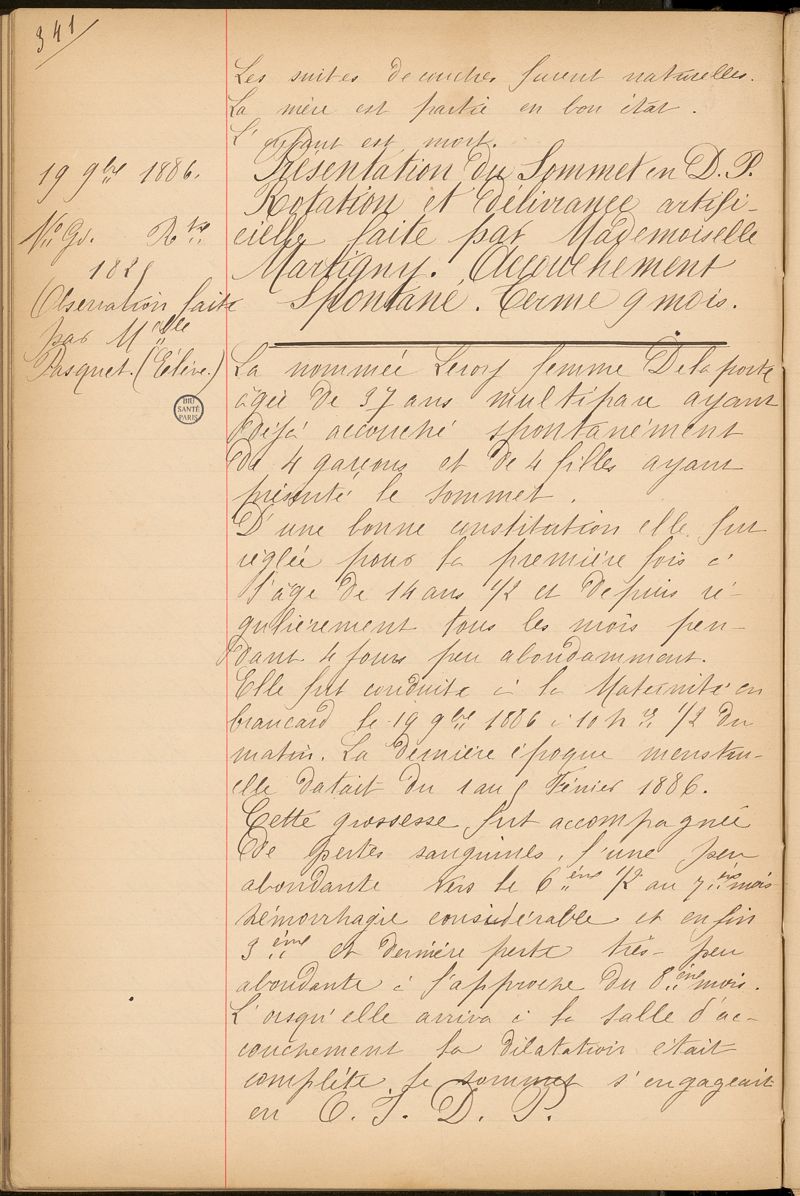 341
Les suites de couches furent naturelles.
La mère est partie en bon état.
L'enfant est mort.
19 9bre 1886.
No Gd. Rtre
182
Observation faite
par Melle
Pasquet. (Élève.)
BIU
SANTÉ
PARIS
Présentation du Sommet en D. P.
Rotation et délivrance artifi-
cielle faite par Mademoiselle
Martigny. Accouchement
Spontané. Terme 9 mois.
La nommée Leroy femme Delaporte
âgée de 37 ans multipare ayant
déjà accouché spontanément
de 4 garçons et de 4 filles ayant
présenté le sommet.
D'une bonne constitution elle fut
réglée pour la première fois à
l'âge de 14 ans 1/2 et depuis ré-
gulièrement tous les mois pen-
dant 4 jours peu abondamment.
Elle fut conduite à la Maternité en
brancard le 19 9bre 1886 à 10 h res 1/2 du
matin. La dernière époque menstru-
elle datait du 1 au 5 Février 1886.
Cette grossesse fut accompagnée
de pertes sanguines, l'une peu
abondante vers le 6ème 1/2 au 7ème mois
hémorrhagie considérable et enfin
3ème et dernière perte très-peu
abondante à l'approche du 8ème mois.
L'orsqu'elle arriva à la salle d'ac-
couchement la dilatation était
complète, le sommet s'engageait
en O. I. D. P.